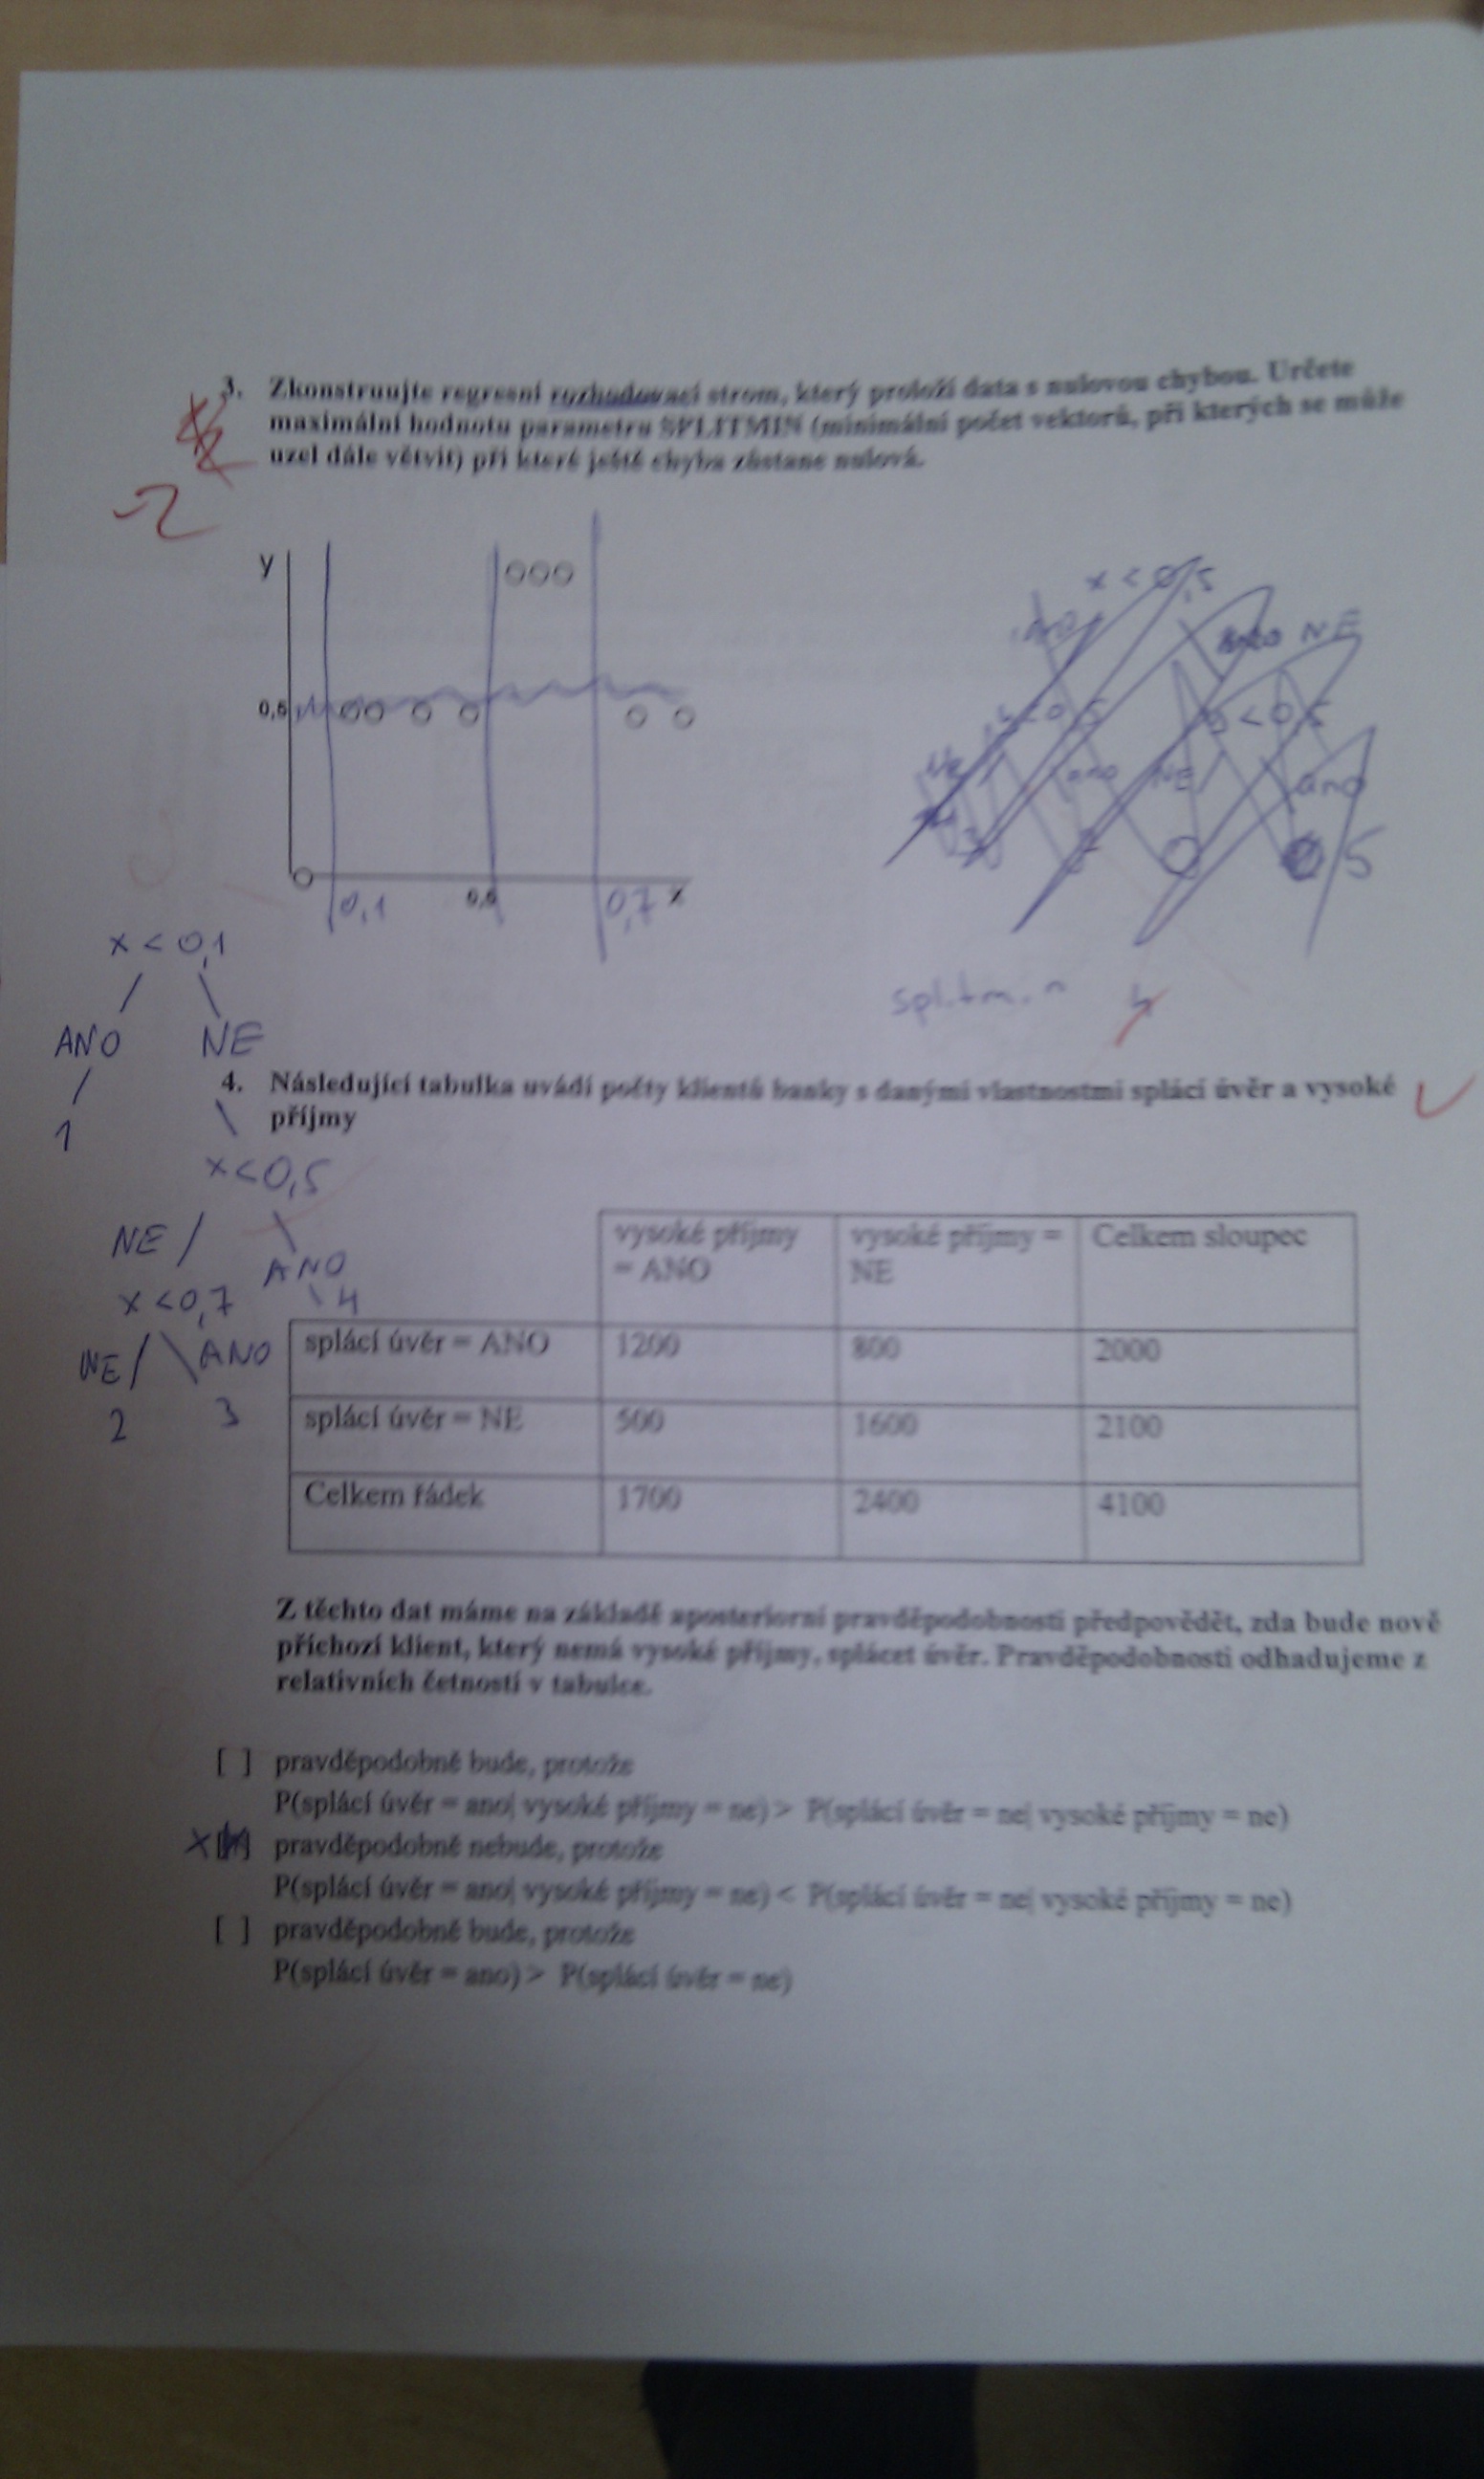 3. Zkonstruujte regresní rozhodovací strom, který proloží data s nulovou chybou. Určete
maximální hodnotu parametru SPLITMIN (minimální počet vektorů, při kterých se může
uzel dále větvit) při které ještě chyba zůstane nulová.
-2
y
x < 0,5
NE
0,5
< 0,5
ano
NE
ano
5
0,1
0,5
0,7
x
x < 0,1
splitmin
4
ANO
NE
4. Následující tabulka uvádí počty klientů banky s danými vlastnostmi splácí úvěr a vysoké
příjmy
1
x<0,5
NE
ANO
x <0,7
4
NE
ANO
2
3
vysoké příjmy
= ANO
vysoké příjmy =
NE
Celkem sloupec
splácí úvěr = ANO 1200 800 2000
splácí úvěr = NE 500 1600 2100
Celkem řádek 1700 2400 4100
Z těchto dat máme na základě aposteriorní pravděpodobnosti předpovědět, zda bude nově
příchozí klient, který nemá vysoké příjmy, splácet úvěr. Pravděpodobnosti odhadujeme z
relativních četností v tabulce.
[ ] pravděpodobně bude, protože
P(splácí úvěr = ano| vysoké příjmy = ne) > P(splácí úvěr = ne| vysoké příjmy = ne)
x [ ] pravděpodobně nebude, protože
P(splácí úvěr = ano| vysoké příjmy = ne) < P(splácí úvěr = ne| vysoké příjmy = ne)
[ ] pravděpodobně bude, protože
P(splácí úvěr = ano) > P(splácí úvěr = ne)